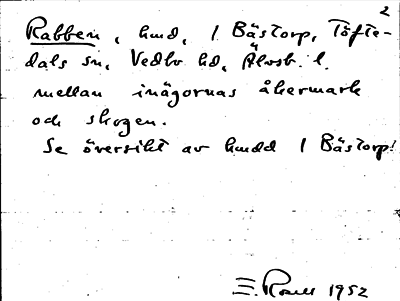 2
Rabben, hmd, 1 Bästorp, Töfte-
dals sn, Vedbo hd, Älvsb. l.
mellan inägornas åkermark
och skogen.
Se översikt av hmdd 1 Bästorp!
E. 1952